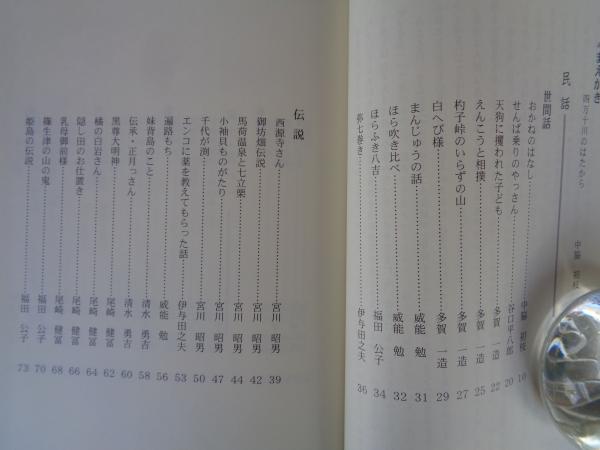 まえがき
四万十川のはたから 中脇 初枝
民話
世間話
おかねのはなし 中脇 初枝
せんば乗りのやっさん 谷口平八郎 20
天狗に攫われた子ども 多賀 一造 22
えんこうと相撲 多賀 一造 25
杓子峠のいらずの山 多賀 一造 27
白へび様 多賀 一造 29
まんじゅうの話 威能 勉 31
ほら吹き比べ 威能 勉 32
ほらふき八吉 福田 公子 34
弥七巻き 伊与田之夫 36
伝説
西源寺さん 宮川 昭男 39
御坊畑伝説 宮川 昭男 42
馬荷温泉と七立栗 宮川 昭男 44
小袖貝ものがたり 宮川 昭男 47
千代が渕 宮川 昭男 50
エンコに薬を教えてもらった話 伊与田之夫 53
遍路もち 威能 勉 56
妹背島のこと 清水 勇吉 58
伝承・正月っさん 清水 勇吉 60
黒尊大明神 尾崎 健冨 62
橘の白岩さん 尾崎 健冨 64
隠し田のお仕置き 尾崎 健冨 66
乳母御前様 尾崎 健冨 68
篠生津の山の鬼 福田 公子 70
姫島の伝説 福田 公子 73